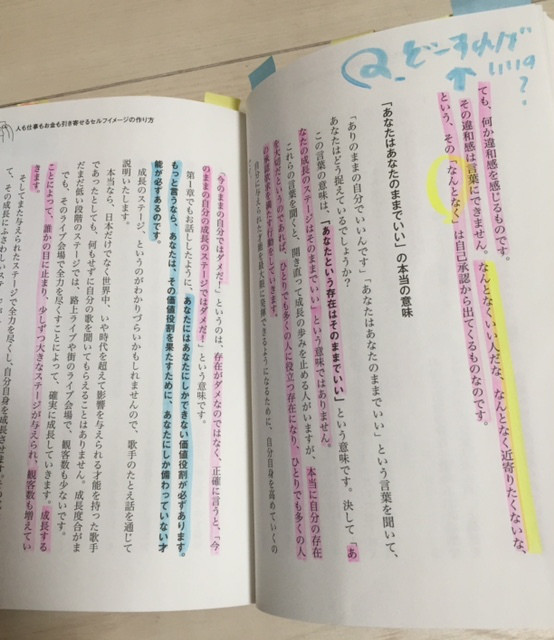 Q. どーすれば
いいの?
ても、何か違和感を感じるものです。
その違和感は言葉にできません。なんとなくいい人だな、なんとなく近寄りたくないな、
という、その「なんとなく」は自己承認から出てくるものなのです。
「あなたはあなたのままでいい」の本当の意味
「ありのままの自分でいいんです」「あなたはあなたのままでいい」という言葉を聞いて、
あなたはどう捉えているでしょうか?
この言葉の意味は、「あなたという存在はそのままでいい」という意味です。決して「あ
なたの成長のステージはそのままでいい」という意味ではありません。
これらの言葉を聞くと、開き直って成長の歩みを止める人がいますが、本当に自分の存在
を大切だというのであれば、ひとりでも多くの人に役立つ存在になり、ひとりでも多くの人
の承認欲求を満たす行動をしていきます。
自分に与えられた才能を最大限に発揮できるようになるために、自分自身を高めていくの
人も仕事もお金も引き寄せるセルフイメージの作り方
「今のままの自分ではダメだ!」というのは、存在がダメなのではなく、正確に言うと、「今
のままの自分の成長のステージではダメだ!」という意味です。
第1章でもお話ししたように、あなたにはあなたにしかできない価値役割が必ずあります。
もっと言うなら、あなたは、その価値役割を果たすために、あなたにしか備わっていない才
能が必ずあるのです。
成長のステージ、というのがわかりづらいかもしれませんので、歌手のたとえ話を通じて
説明いたします。
本当なら、日本だけでなく世界中、いや時代を超えて影響を与えられる才能を持った歌手
であったとしても、何もせずに自分の歌を聞いてもらえることはありません。成長度合がま
だまだ低い段階のステージでは、路上ライブや街のライブ会場で、観客数も少ないです。
でも、そのライブ会場で全力を尽くすことによって、確実に成長していきます。成長する
ことによって、誰かの目に止まり、少しずつ大きなステージが与えられ、観客数も増えてい
きます。
そしてまた与えられたステージで全力を尽くし、自分自身を成長させます。
て、その成長にふさわしいステ